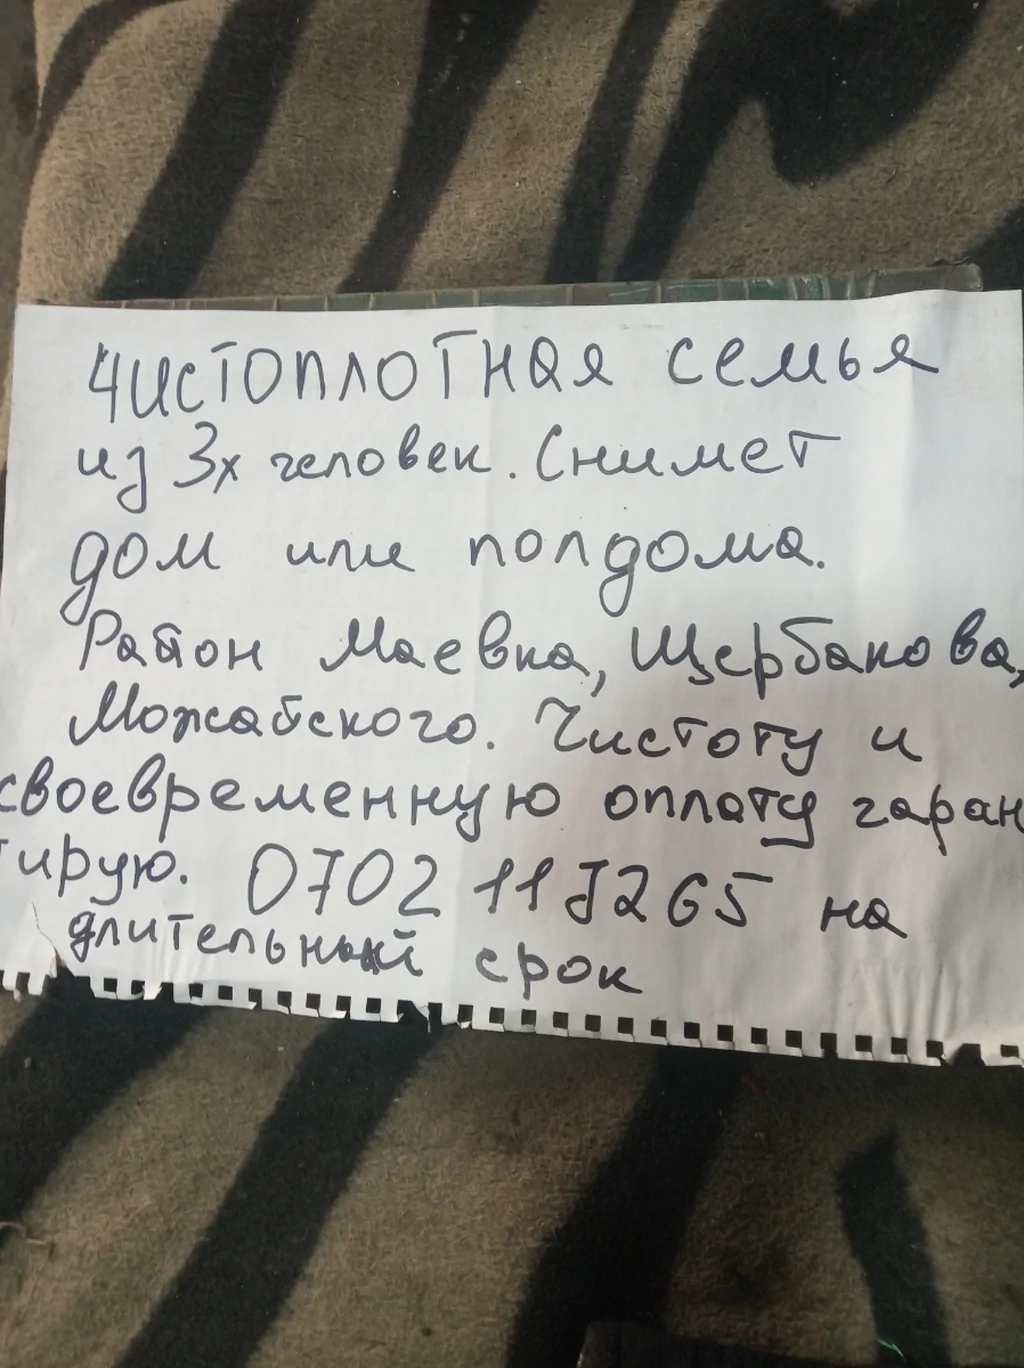 Чистоплотная семья
из 3х человек. Снимет
дом или полдома.
Район Маевка, Щербакова,
Можайского. Чистоту и
своевременную оплату гаран
тирую. 0702 117265 на
длительный срок